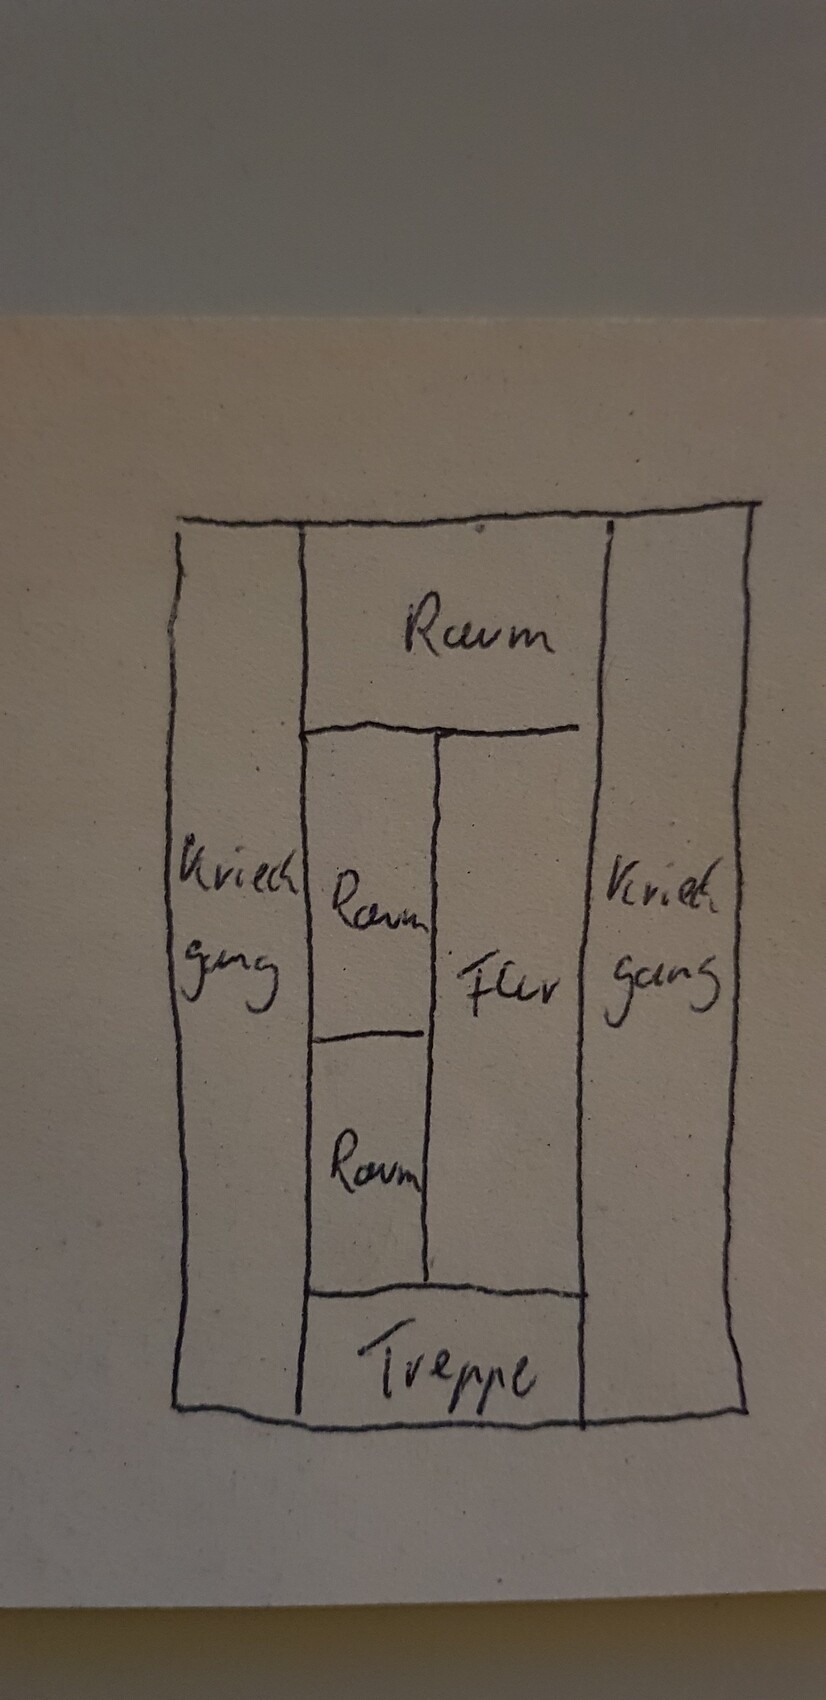 Raum
Kriech
gang
Raum
Flur
Kriech
gang
Raum
Treppe